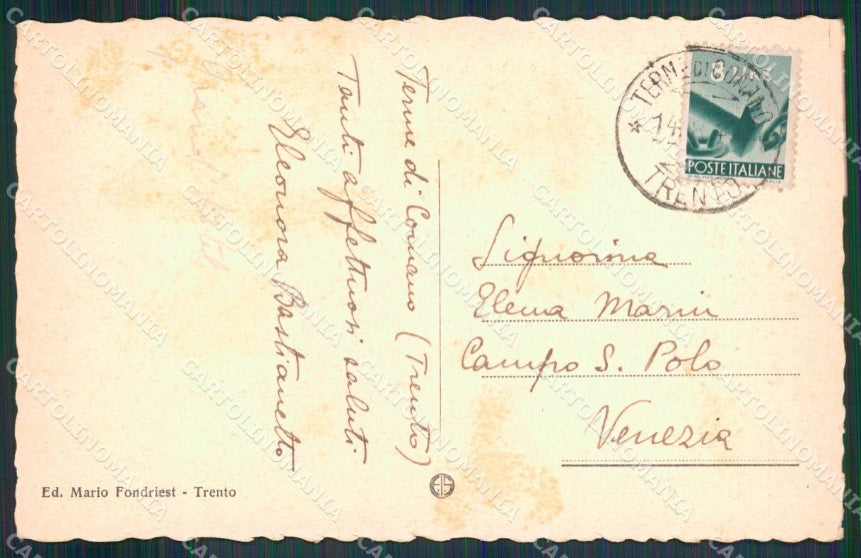 Terme di Comano (Trento)
Tanti affettuosi saluti
Eleonora Bastianetto
TERME DI COMANO
14.
TRENTO
8 LIRE
POSTE ITALIANE
Signorina
Elena Marin
Campo S. Polo
Venezia
Ed. Mario Fondriest - Trento
CARTOLINOMANIA